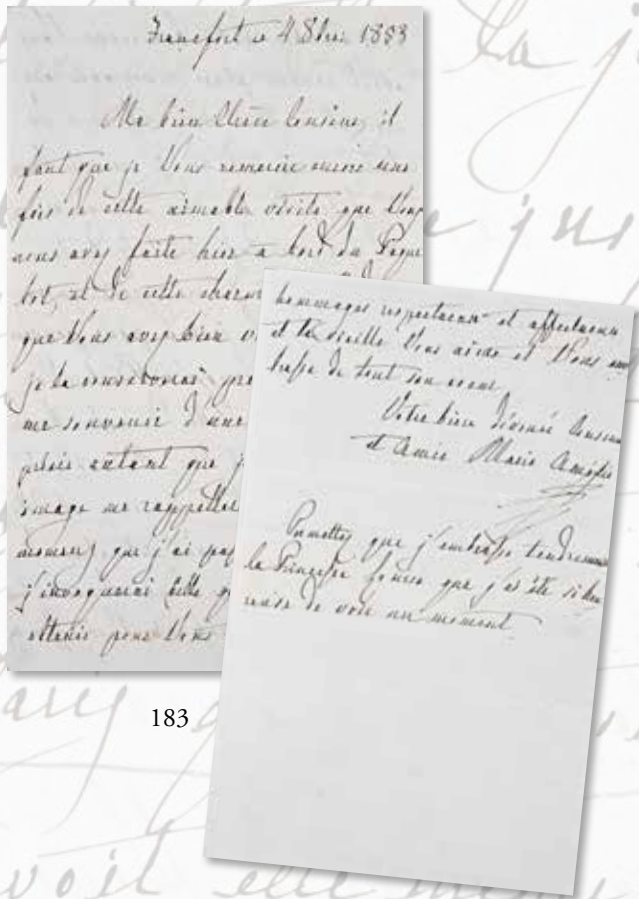 Francfort ce 4 8bre 1853
Ma bien Chère Cousine, il
faut que je Vous remercie encore une
fois de cette aimable visite que Vous
nous avez faite hier a bord du Paque
bot, et de cette charm
que Vous avez bien v
je la conserverai pré
me souvenir d'une
plais autant que j
image me rappeller
momens que j'ai pas
j'invoquerai Celle q
obtenir pour Vous
hommages respectueux et affectueux
et la vieille Vous aime et Vous em
brasse de tout son coeur
Votre bien dévouée Cousine
et Amie Marie Amélie
Permettez que j'embrasse tendrement
la Princesse Louise que j'ai été si heu
reuse de voir un moment
183